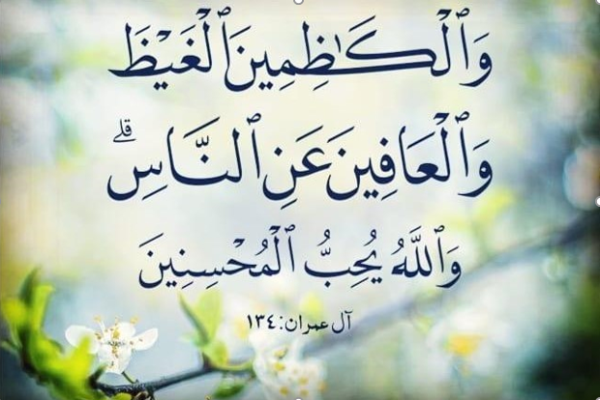 وَٱلْكَـٰظِمِينَ ٱلْغَيْظَ
وَٱلْعَافِينَ عَنِ ٱلنَّاسِ ۗ
وَٱللَّهُ يُحِبُّ ٱلْمُحْسِنِينَ
آل عمران: ١٣٤